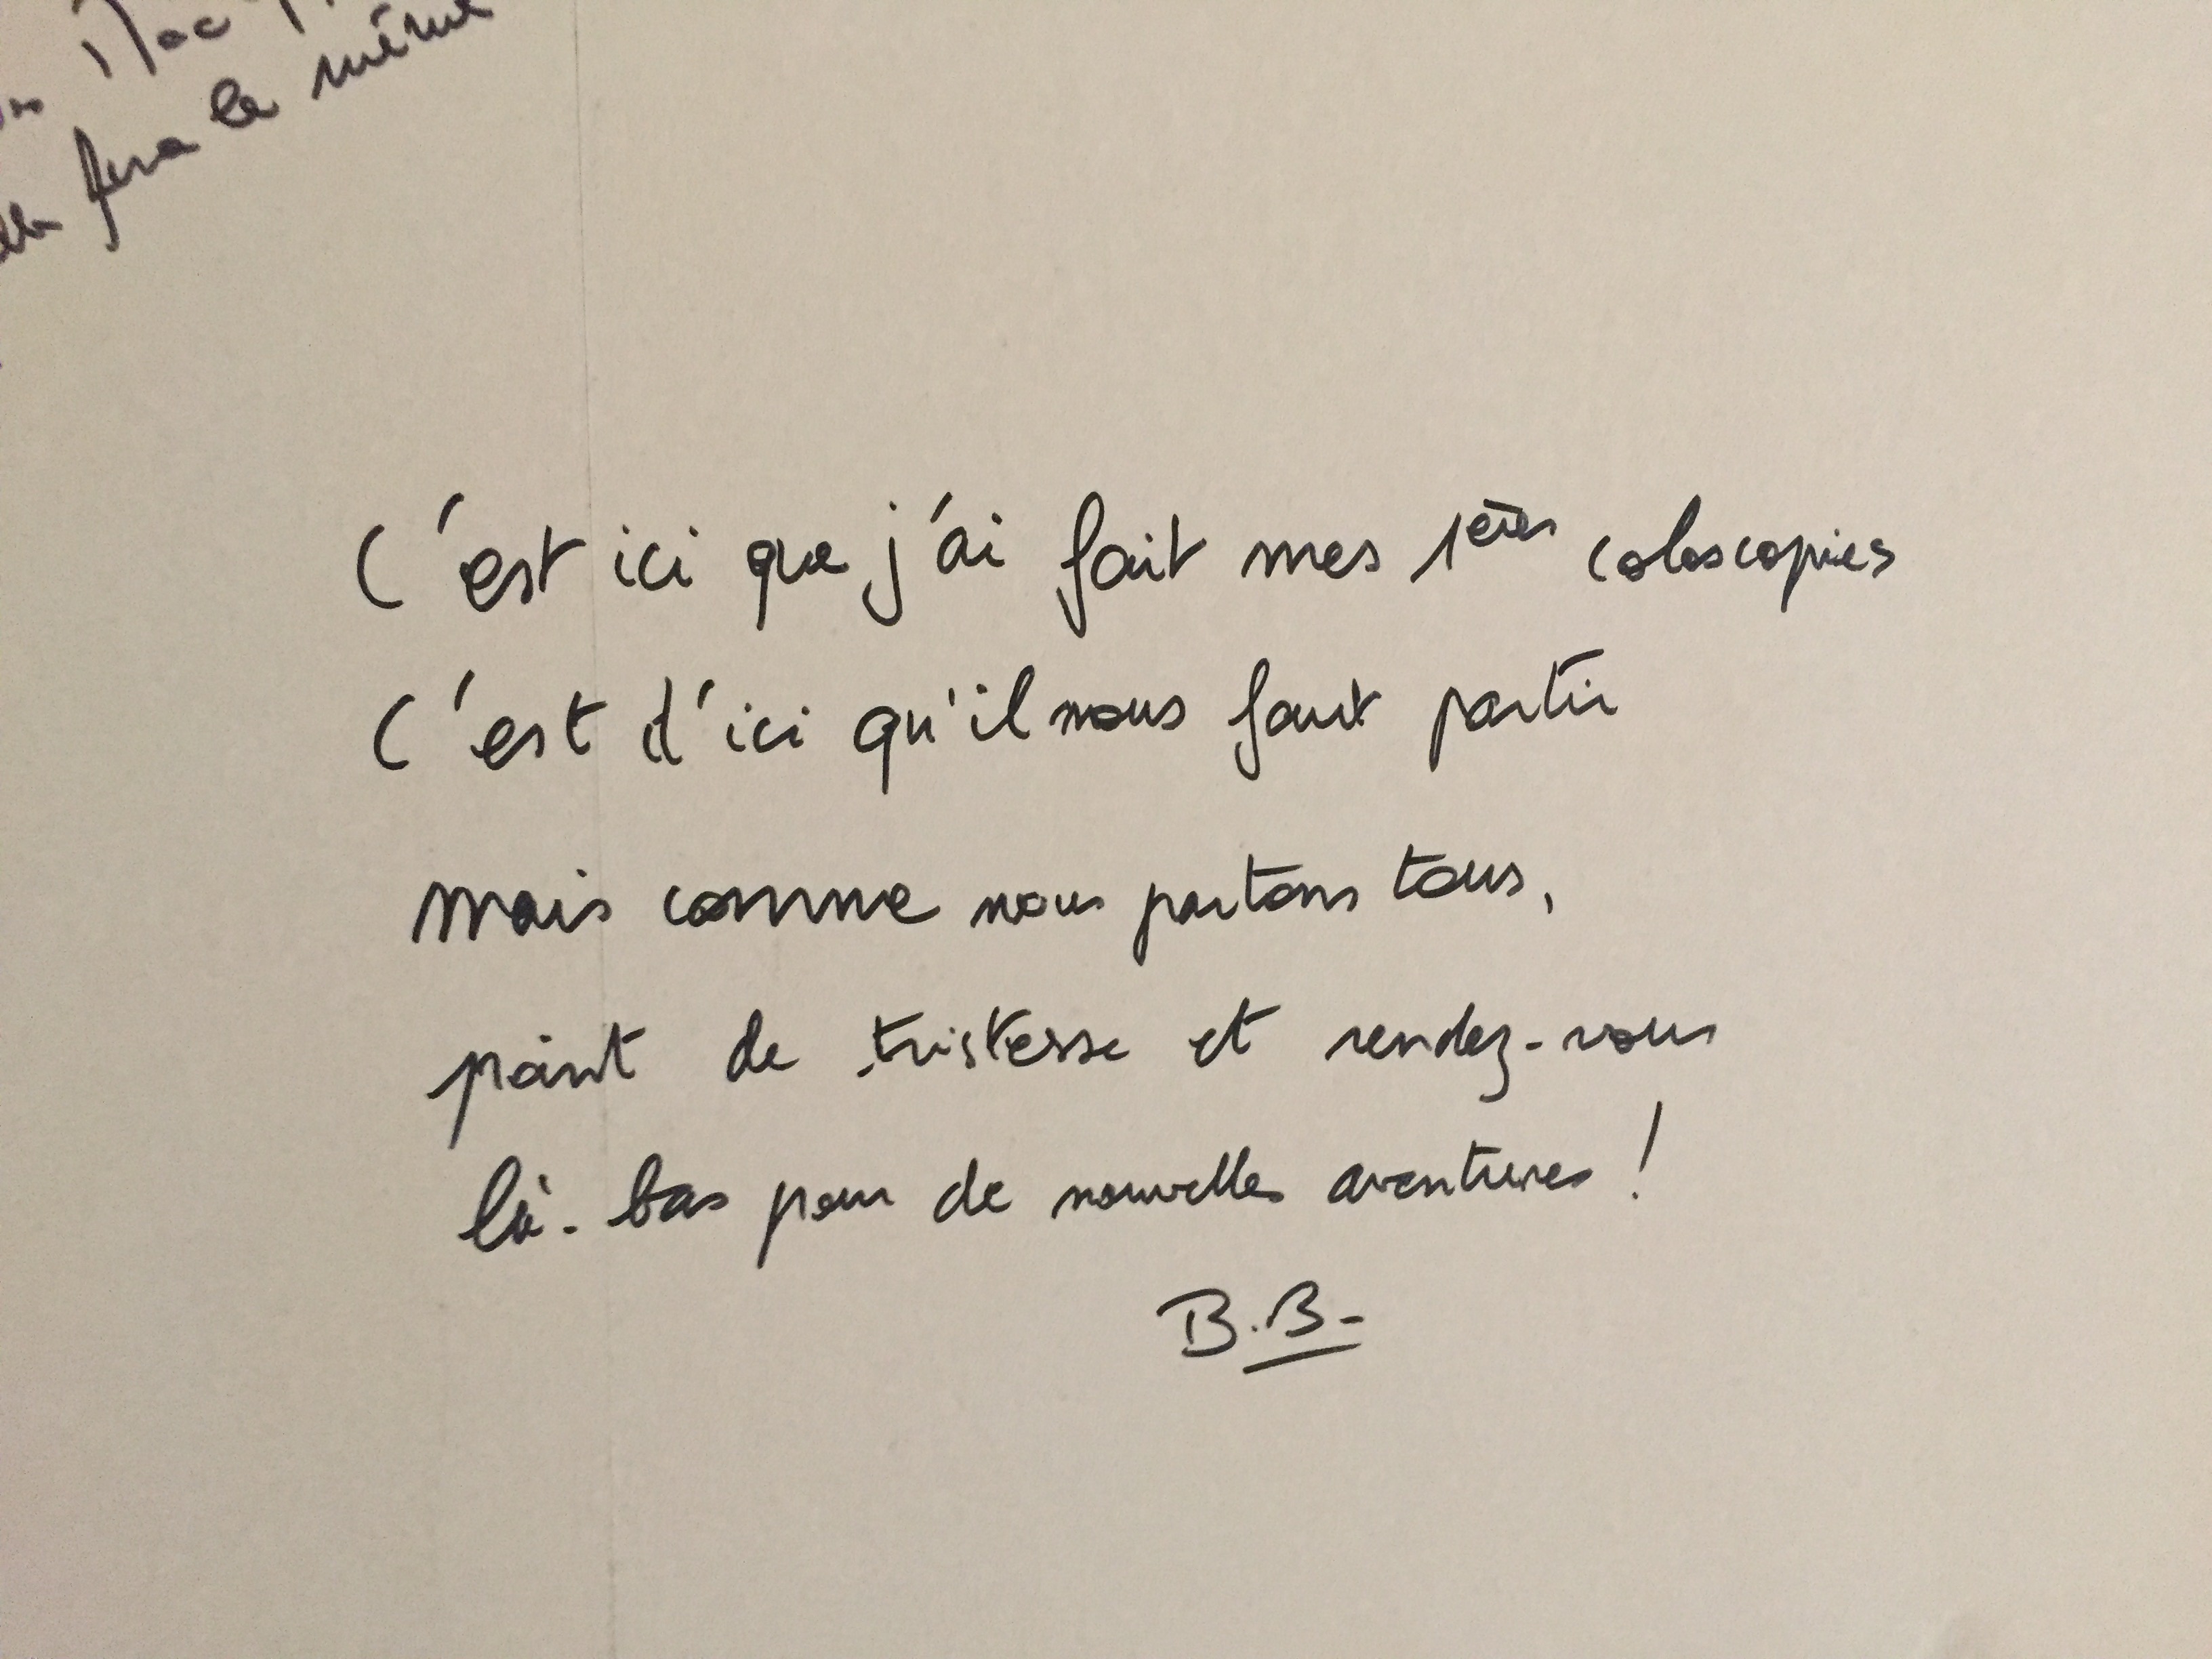 fera le même
C'est ici que j'ai fait mes 1ères coloscopies
C'est d'ici qu'il nous faut partir
mais comme nous partons tous,
point de tristesse et rendez-vous
là-bas pour de nouvelles aventures !
B.B-